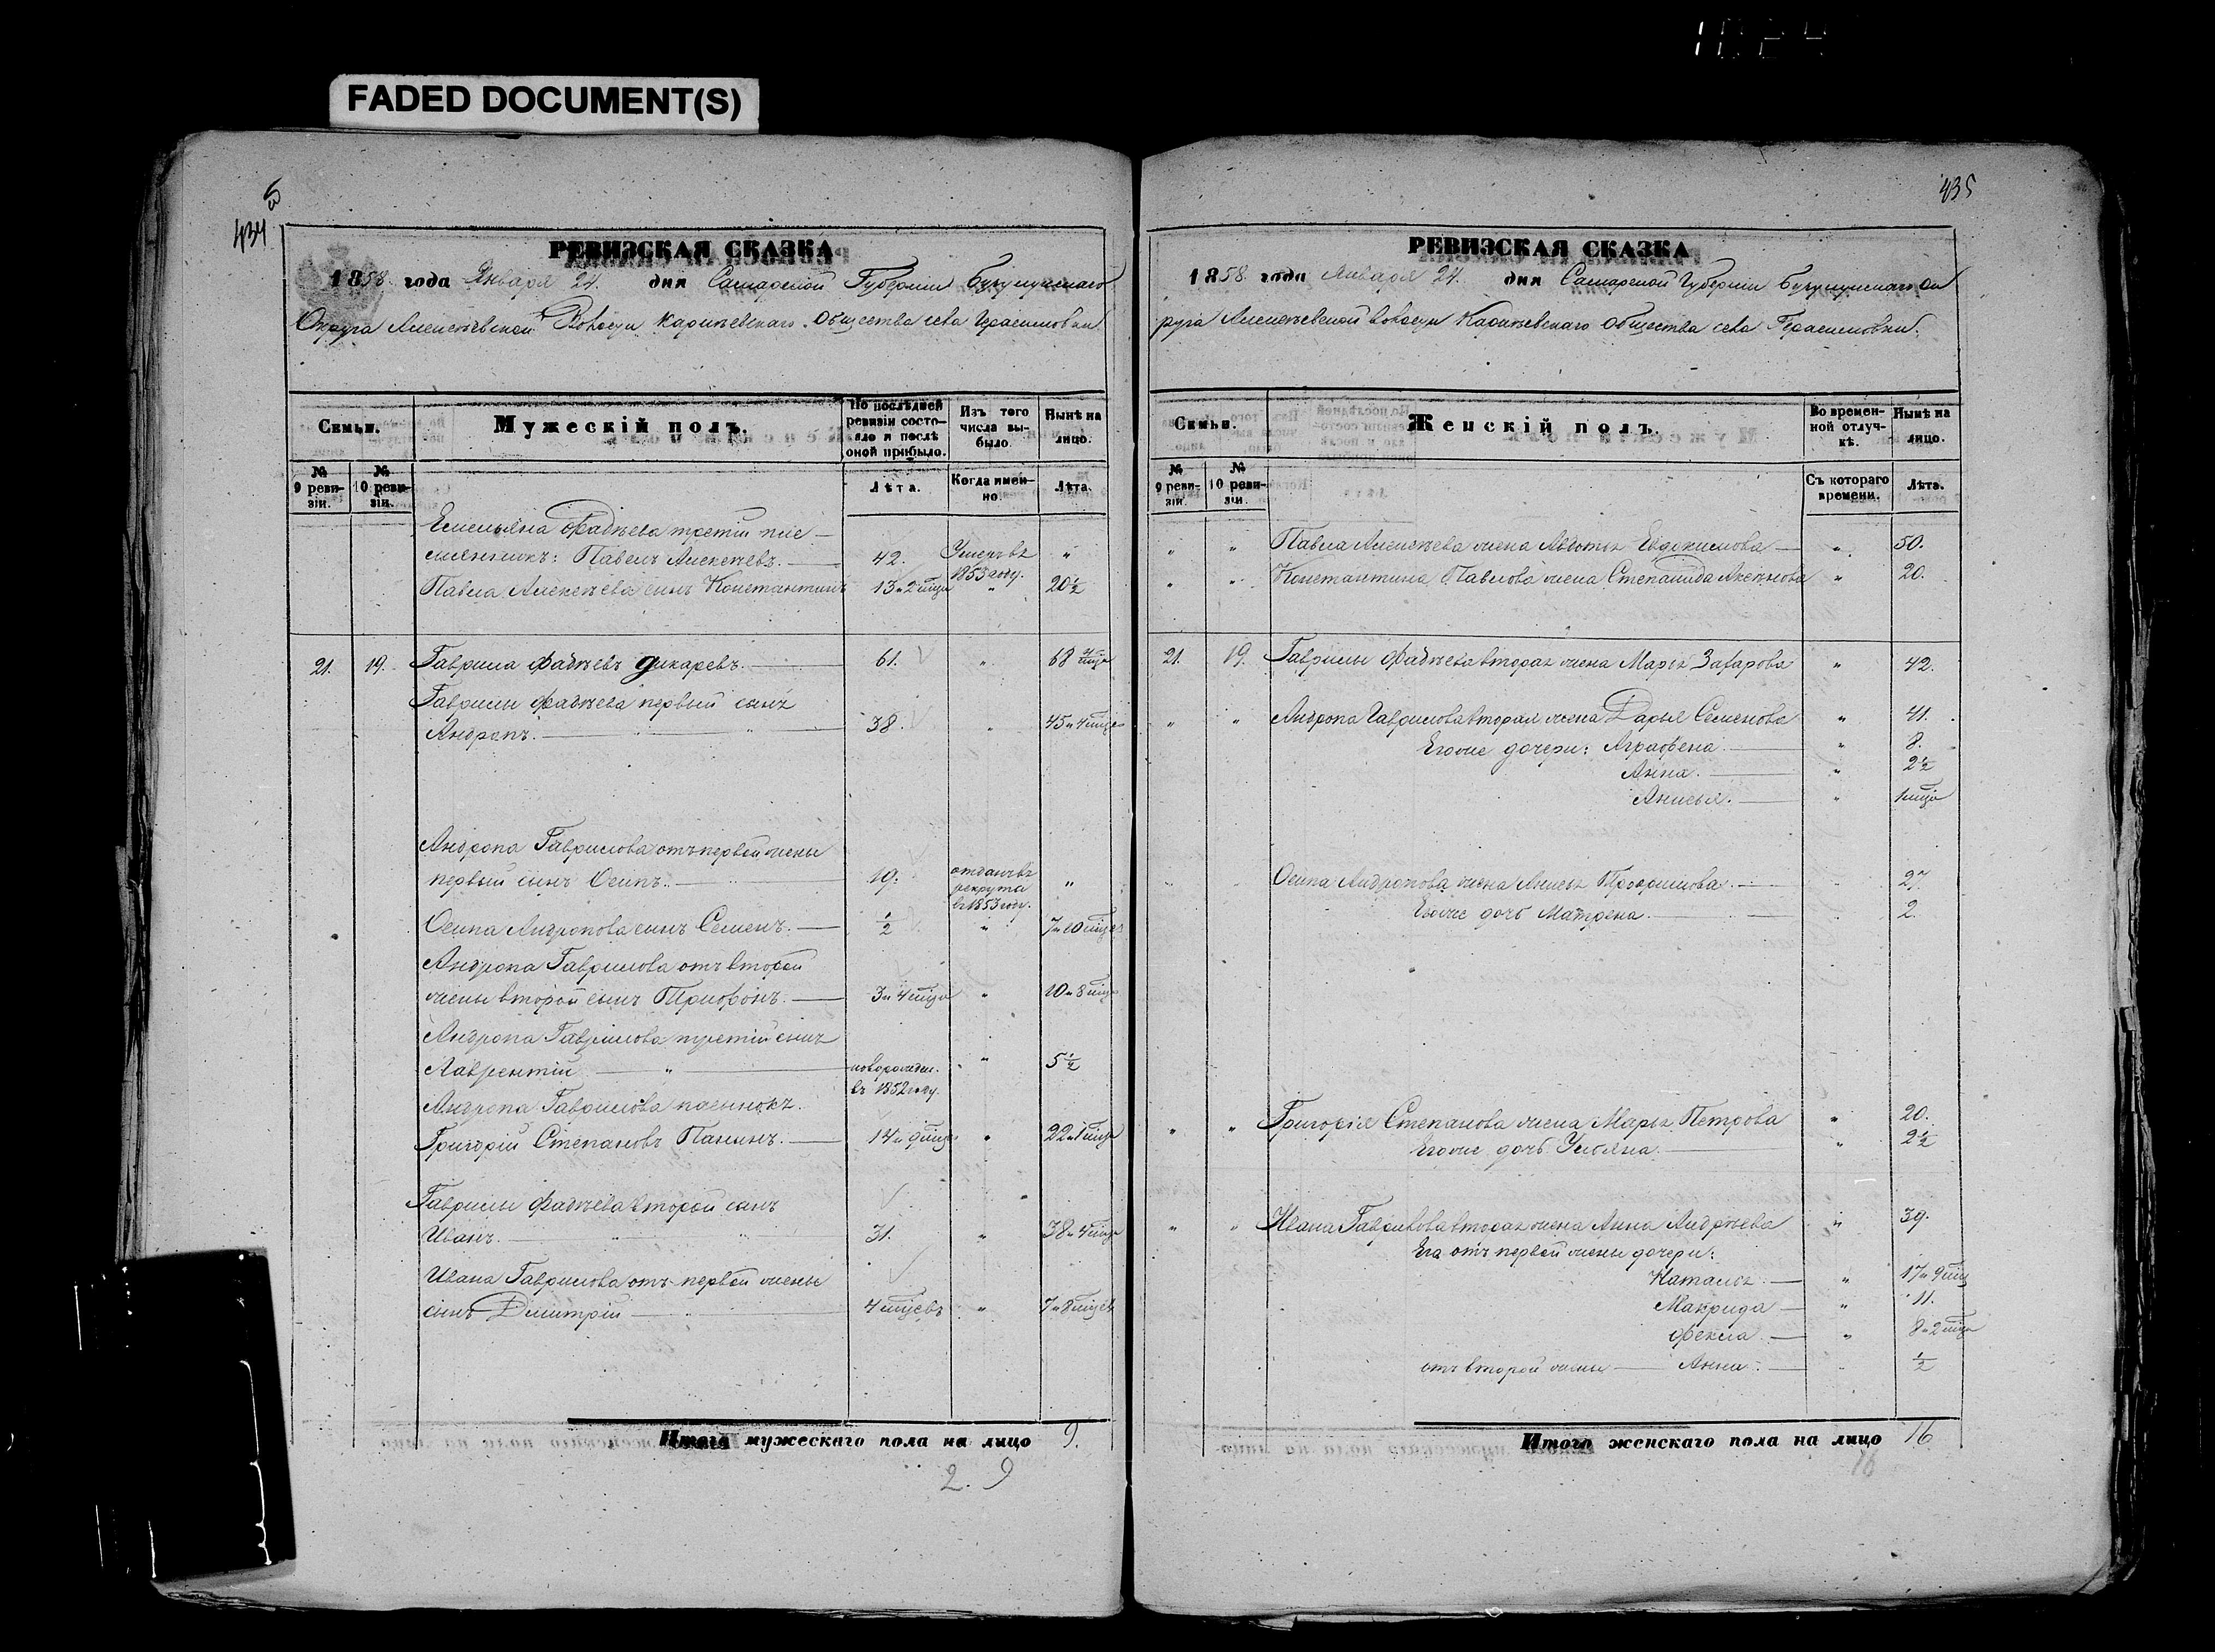 FADED DOCUMENT(S)
434
РЕВИЗСКАЯ СКАЗКА
1858 года Января 24. дня Самарской Губернии Бузулукскаго
Округа Алексеевской Волости Каритевскаго Общества села Герасимовки
Семьи.
Мужескій полъ.
По послѣдней ревизіи состояло и послѣ оной прибыло.
Изъ того числа выбыло.
Нынѣ на лицо.
№ 9 ревизіи.
№ 10 ревизіи.
Лѣта.
Когда именно.
Лѣта.
Емельяна Фадѣева третій пле-
мянникъ: Павелъ Алексѣевъ. 42. Умеръ въ 1853 году. "
Павла Алексѣева сынъ Константинъ 13 " 2 мѣца " 20½
21. 19. Гаврила Фадѣевъ Дикаревъ. 61. " 68
Гаврилы Фадѣева первый сынъ
Андропъ. 38. " 45 " 4 мѣца
Андропа Гаврилова отъ первой жены
первый сынъ Осипъ. 19. отданъ въ рекруты въ 1853 году. "
Осипа Андропова сынъ Семенъ. ½ " 7 " 10 мѣцев
Андропа Гаврилова отъ второй
жены второй сынъ Трифонъ. 3 " 4 мѣца " 10 " 8 мѣце
Андропа Гаврилова третій сынъ
Лаврентій новорожден. въ 1852 году. " 5½
Андропа Гаврилова пасынокъ.
Григорій Степановъ Панинъ. 14 " 9 мѣце " 22 " 1 мѣца
Гаврилы Фадѣева второй сынъ
Иванъ. 31. " 38 " 4 мѣца
Ивана Гаврилова отъ первой жены
сынъ Димитрій 4 мѣцевъ " 7 " 8 мѣцев
Итого мужескаго пола на лицо 9.
2. 9
435
РЕВИЗСКАЯ СКАЗКА
1858 года Января 24. дня Самарской Губерніи Бузулукскаго Ок
руга Алексеевской Волости Каритевскаго Общества села Герасимовки.
Семьи.
Женскій полъ.
Во временной отлучкѣ.
Нынѣ на лицо.
№ 9 ревизіи.
№ 10 ревизіи.
Съ котораго времени.
Лѣта.
" " Павла Алексѣева жена Авдотья Евдокимова " 50.
" " Константина Павлова жена Степанида Аксенова " 20.
21. 19. Гаврилы Фадѣева вторая жена Марья Захарова " 42.
" " Андропа Гаврилова вторая жена Дарья Семенова " 41.
Егоже дочери: Аграфена. " 8.
Анна. " 2½
Анисья. " 1 мѣца
Осипа Андропова жена Анисья Трофимова. 27.
Егоже дочь Матрена. 2.
" " Григорія Степанова жена Марья Петрова " 20.
Егоже дочь Ульяна. " 2½
" " Ивана Гаврилова вторая жена Анна Андрѣева " 39.
Его отъ первой жены дочери:
Наталья. " 17 " 9 мѣц
Макрида " 11.
Фекла. " 8 " 2 мѣца
отъ второй жены Анна. ½
Итого женскаго пола на лицо 16
16